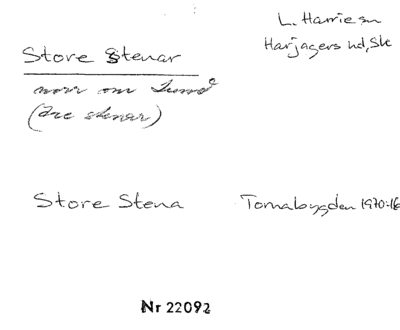 L. Harrie sn
Harjagers hd, Sk
Store Stenar
norr om Lund
(Tre stenar)
Store Stena Tornabygden 1970-16
Nr 22092